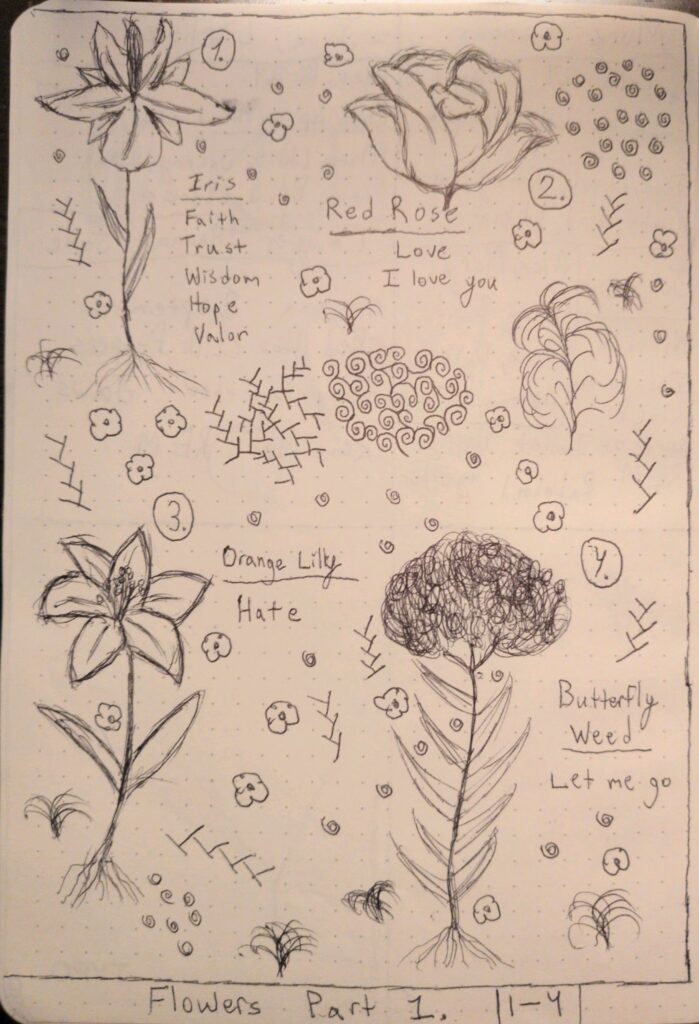 1.
Iris
Faith
Trust
Wisdom
Hope
Valor
2.
Red Rose
Love
I love you
3.
Orange Lilly
Hate
4.
Butterfly
Weed
Let me go
Flowers Part 1. |1-4|